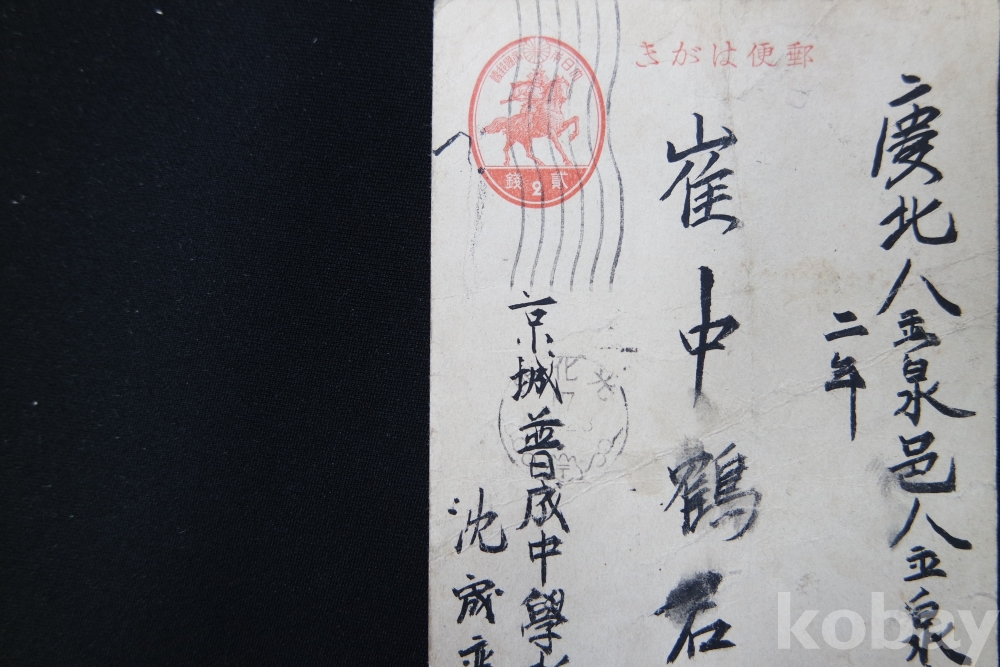 郵便はがき
大日本帝國郵便
貳 2 錢
慶北金泉邑金泉
二年
崔中鶴石
京城普成中學
沈
kobay